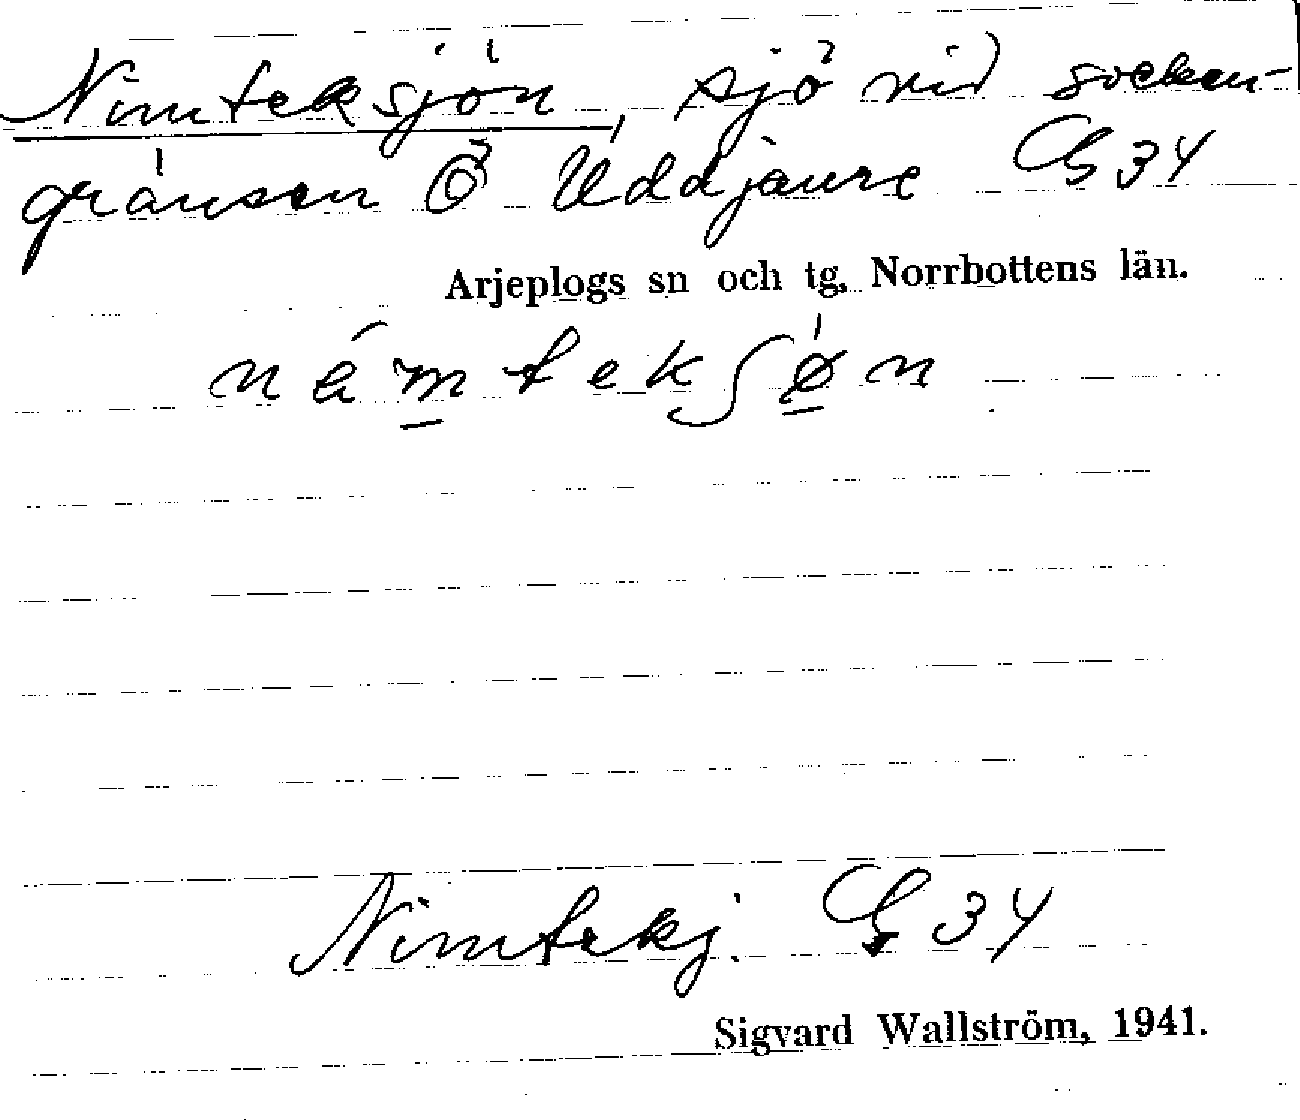 Nimteksjön, sjö vid socken-
gränsen Ö Uddjaure G 34
Arjeplogs sn och tg, Norrbottens län.
német̲ekʃø̲n
Nimtekj. G 34
Sigvard Wallström, 1941.